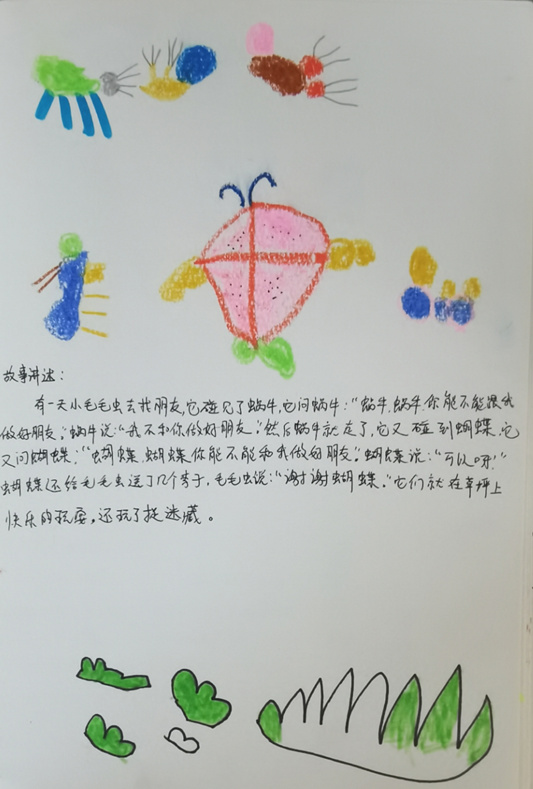 故事讲述：
有一天小毛毛虫去找朋友,它碰见了蜗牛,它问蜗牛："蜗牛,蜗牛你能不能跟我
做好朋友。"蜗牛说："我不和你做好朋友。"然后蜗牛就走了,它又碰到蝴蝶,它
又问蝴蝶："蝴蝶,蝴蝶你能不能和我做好朋友。"蝴蝶说："可以呀!"
蝴蝶还给毛毛虫送了几个李子,毛毛虫说："谢谢蝴蝶。"它们就在草坪上
快乐的玩耍,还玩了捉迷藏。